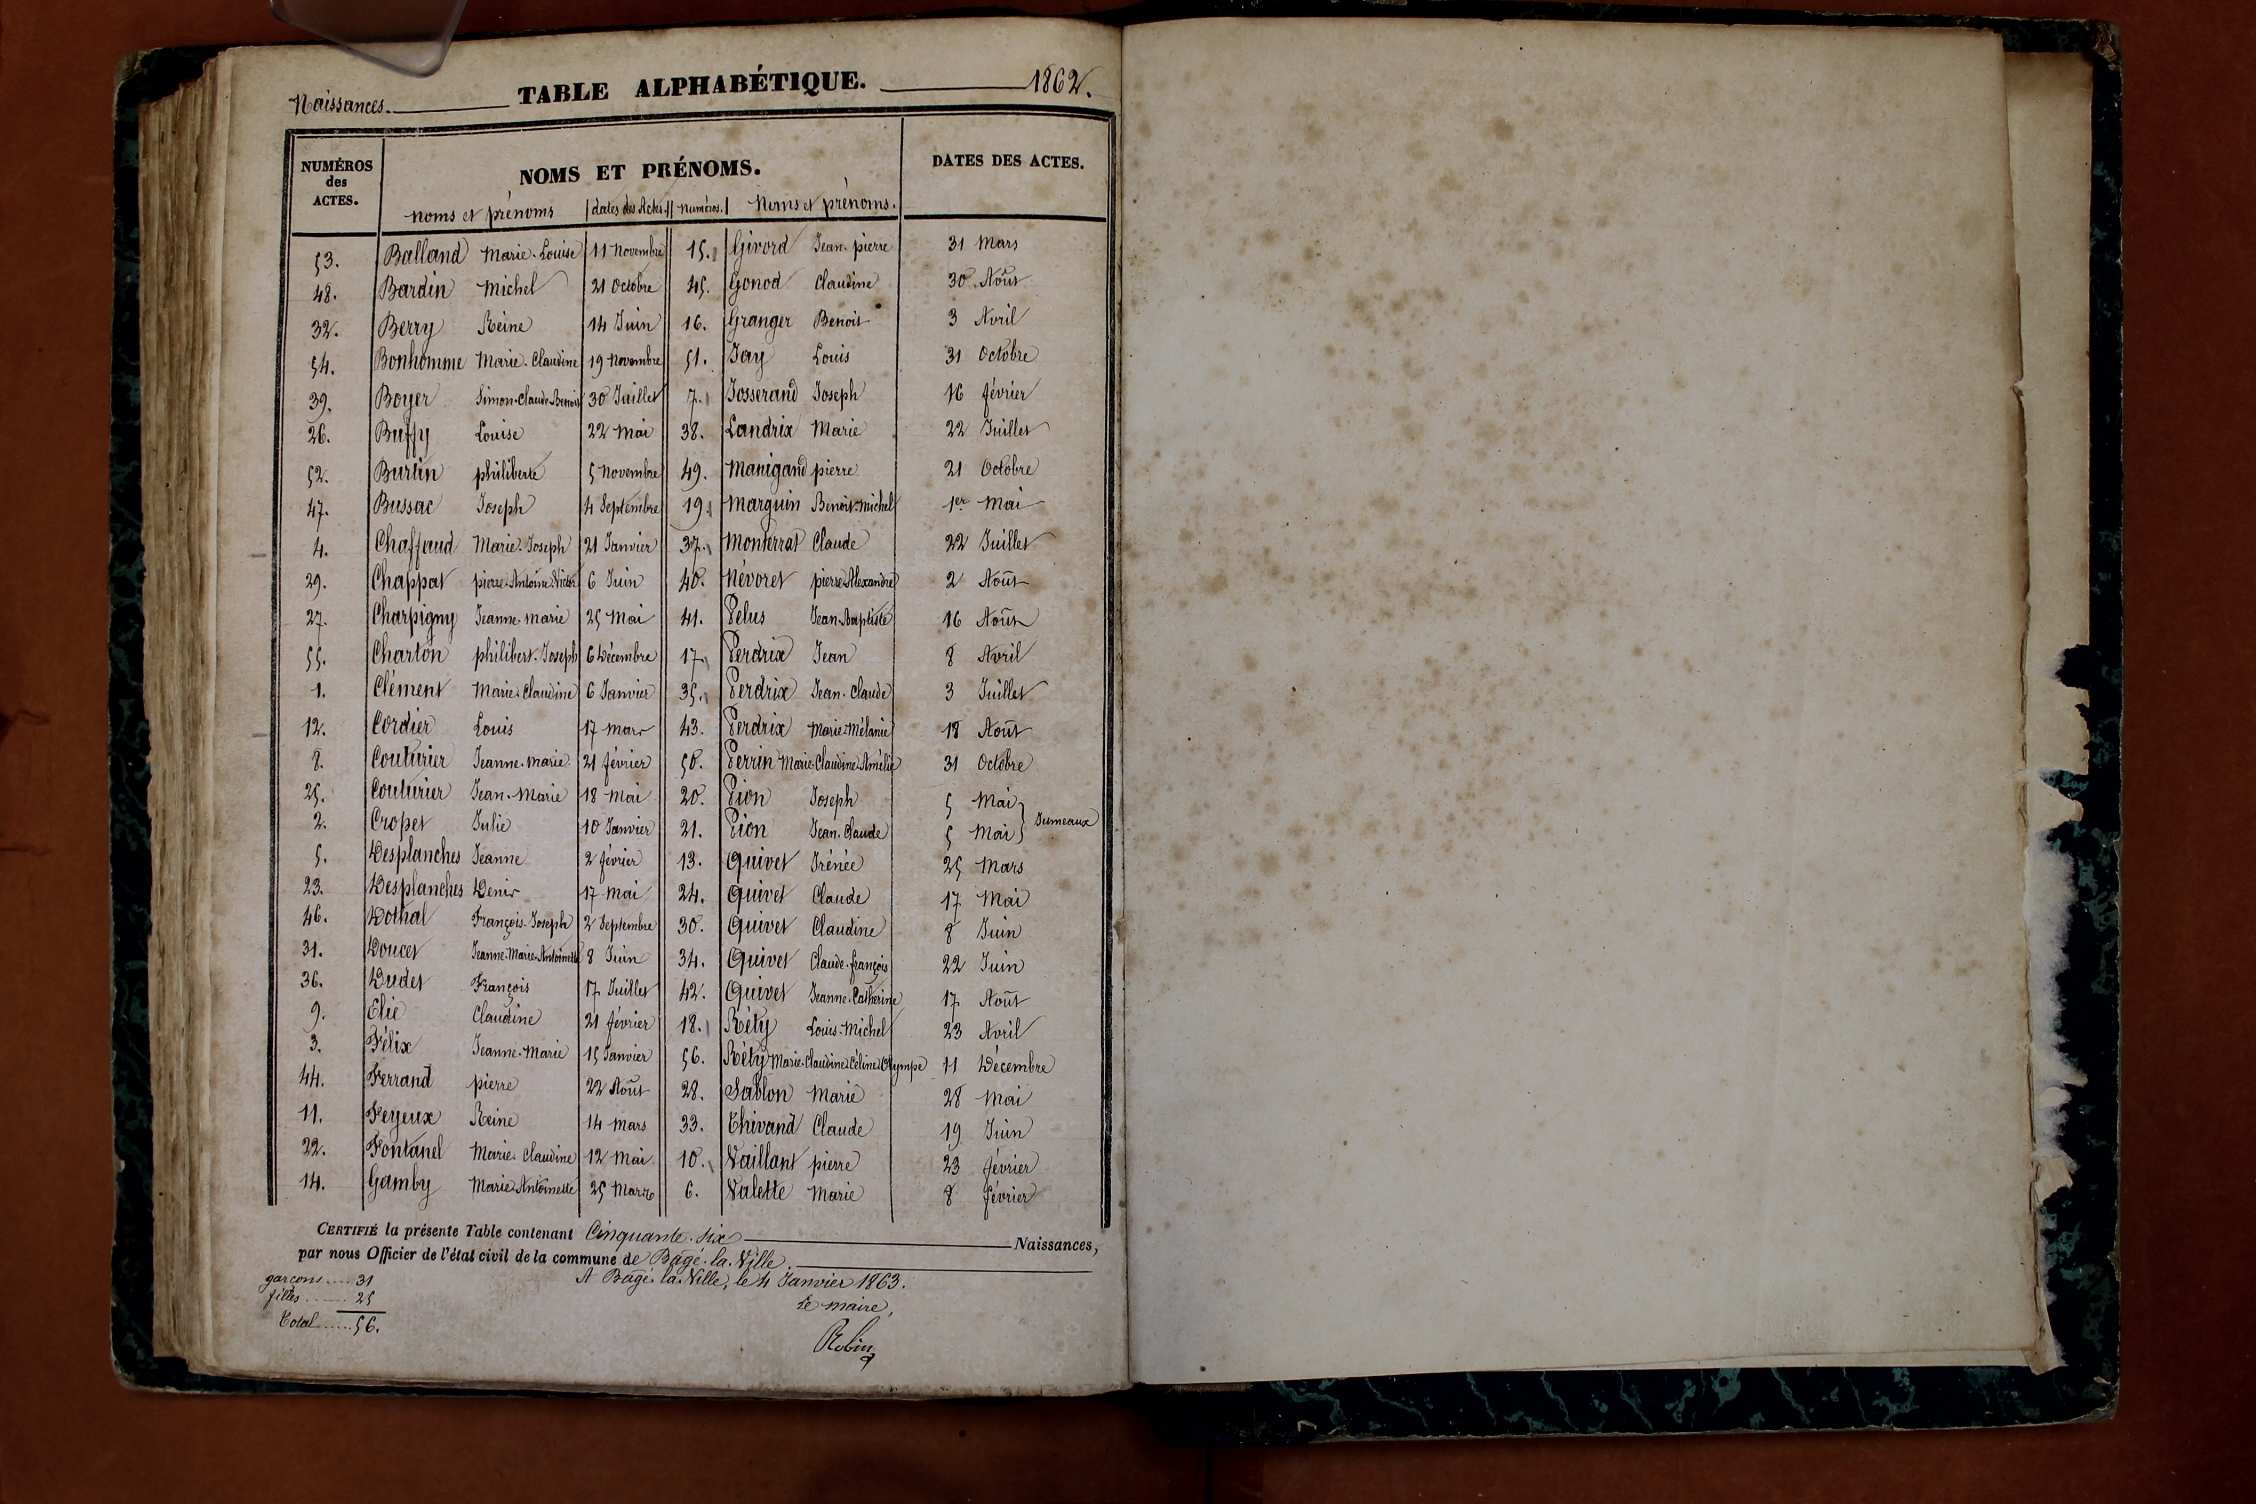 Naissances. TABLE ALPHABÉTIQUE. 1862.
NUMÉROS des ACTES. NOMS ET PRÉNOMS. DATES DES ACTES.
noms et prénoms dates des Actes. Numéros. Noms et prénoms.
53. Balland Marie-Louise 11 Novembre 15. Givord Jean-pierre 31 Mars
48. Bardin Michel 21 Octobre 45. Gonod Claudine 30 Août
32. Berry Reine 14 Juin 16. Granger Benoit 3 Avril
54. Bonhomme Marie-Claudine 19 Novembre 51. Jay Louis 31 Octobre
39. Boyer Simon-Claude-Benoit 30 Juillet 7. Josserand Joseph 16 février
26. Buffy Louise 22 Mai 38. Landrix Marie 22 Juillet
52. Burtin philiberte 5 Novembre 49. Manigand pierre 21 Octobre
47. Bussac Joseph 4 Septembre 19. Marguin Benoit-Michel 1er Mai
4. Chaffaud Marie-Joseph 21 Janvier 37. Monterrat Claude 22 Juillet
29. Chappat pierre-Antoine-Victor 6 Juin 40. Névoret pierre-Alexandre 2 Août
27. Charpigny Jeanne-Marie 25 Mai 41. Pelus Jean-Baptiste 16 Août
55. Charton philibert-Joseph 6 Décembre 17. Perdrix Jean 8 Avril
1. Clément Marie-Claudine 6 Janvier 35. Perdrix Jean-Claude 3 Juillet
12. Cordier Louis 17 Mars 43. Perdrix Marie-Mélanie 18 Août
8. Couturier Jeanne-Marie 21 février 50. Perrin Marie-Claudine-Amélie 31 Octobre
25. Couturier Jean-Marie 18 Mai 20. Pion Joseph 5 Mai
2. Cropet Julie 10 Janvier 21. Pion Jean-Claude 5 Mai Jumeaux
5. Desplanches Jeanne 2 février 13. Quivet Irénée 25 Mars
23. Desplanches Denis 17 Mai 24. Quivet Claude 17 Mai
46. Dothal François-Joseph 2 Septembre 30. Quivet Claudine 8 Juin
31. Doucet Jeanne-Marie-Antoinette 8 Juin 34. Quivet Claude-françois 22 Juin
36. Dudet François 17 Juillet 42. Quivet Jeanne-Catherine 17 Août
9. Elie Claudine 21 février 18. Réty Louis-Michel 23 Avril
3. Félix Jeanne-Marie 15 Janvier 56. Réty Marie-Claudine-Céline-Olympe 11 Décembre
44. Ferrand pierre 22 Août 28. Sablon Marie 28 Mai
11. Feyeux Reine 14 Mars 33. Thivand Claude 19 Juin
22. Fontanel Marie-Claudine 12 Mai 10. Vaillant pierre 23 février
14. Gamby Marie-Antoinette 25 Mars 6. Valette Marie 8 février
CERTIFIÉ la présente Table contenant Cinquante-six Naissances,
par nous Officier de l'état civil de la commune de Bâgé-la-Ville.
A Bâgé-la-Ville, le 4 Janvier 1863.
garçons .... 31
filles ....... 25
Total ..... 56.
Le Maire,
Robin